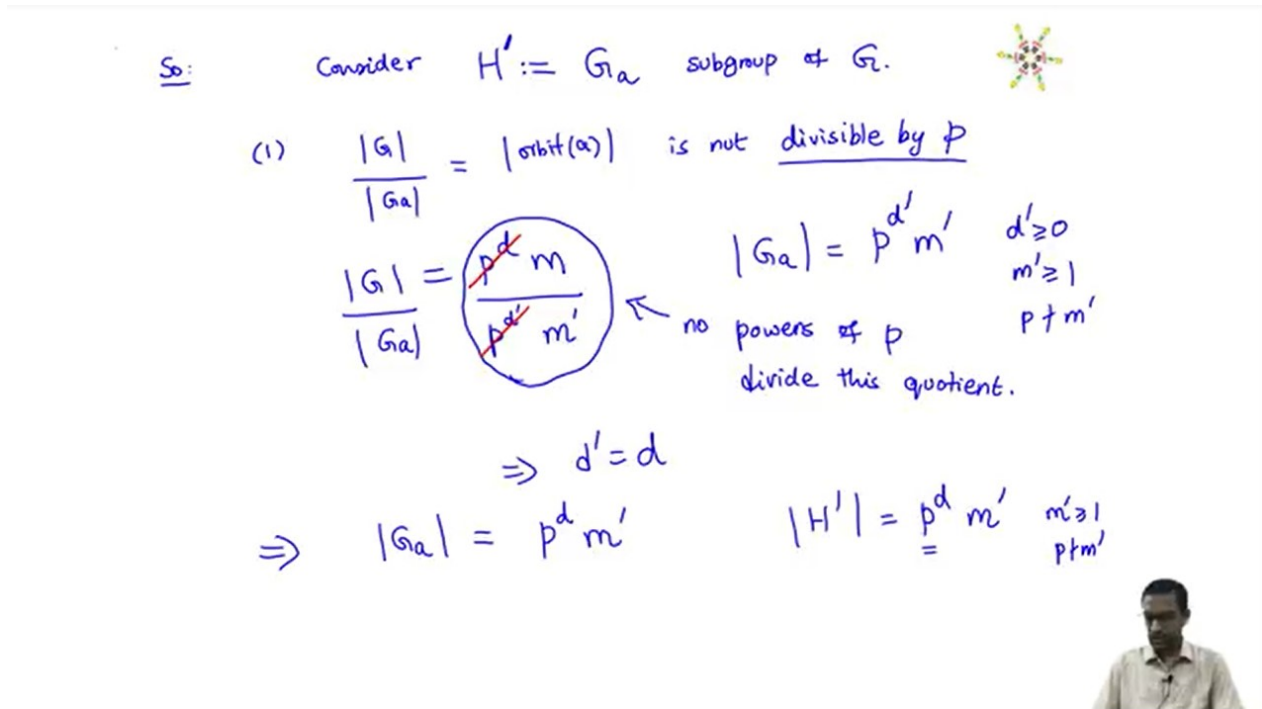 So: Consider H' := Ga subgroup of G.
(1) |G| / |Ga| = |orbit(a)| is not divisible by p
|G| / |Ga| = p^d m / p^d' m'
|Ga| = p^d' m' d' ≥ 0
m' ≥ 1
p ∤ m'
← no powers of p
divide this quotient.
⇒ d' = d
⇒ |Ga| = p^d m'
|H'| = p^d m' m' ≥ 1
p ∤ m'